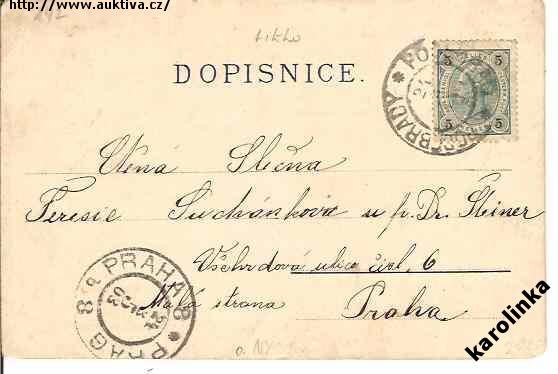 http://www.auktiva.cz/
Litho
DOPISNICE.
5 5
5 5
PODĚBRADY *
Ctěná Slečna
Teresie Suchánkova u p. Dr. Steiner
Všehrdová ulice čísl. 6
Malá strana Praha
PRAG 8/a PRAHA 8 *
karolinka